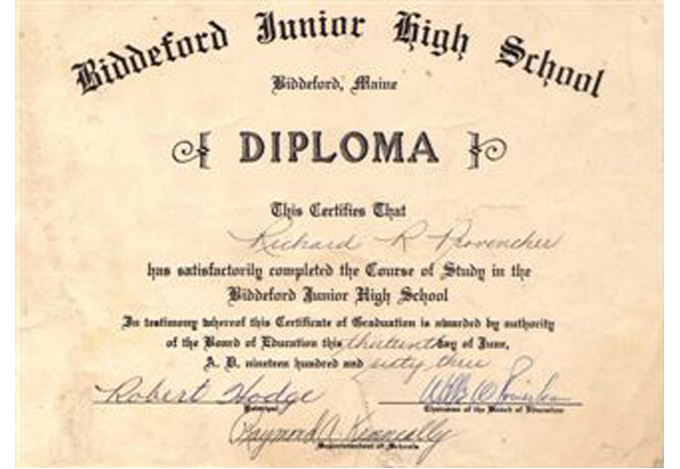 Biddeford Junior High School
Biddeford, Maine
DIPLOMA
This Certifies That
Richard R Provencher
has satisfactorily completed the Course of Study in the
Biddeford Junior High School
In testimony whereof this Certificate of Graduation is awarded by authority
of the Board of Education this thirteenth day of June,
A. D. nineteen hundred and sixty three
Robert Hodge
Principal
Chairman of the Board of Education
Raymond A. Kenneally
Superintendent of Schools